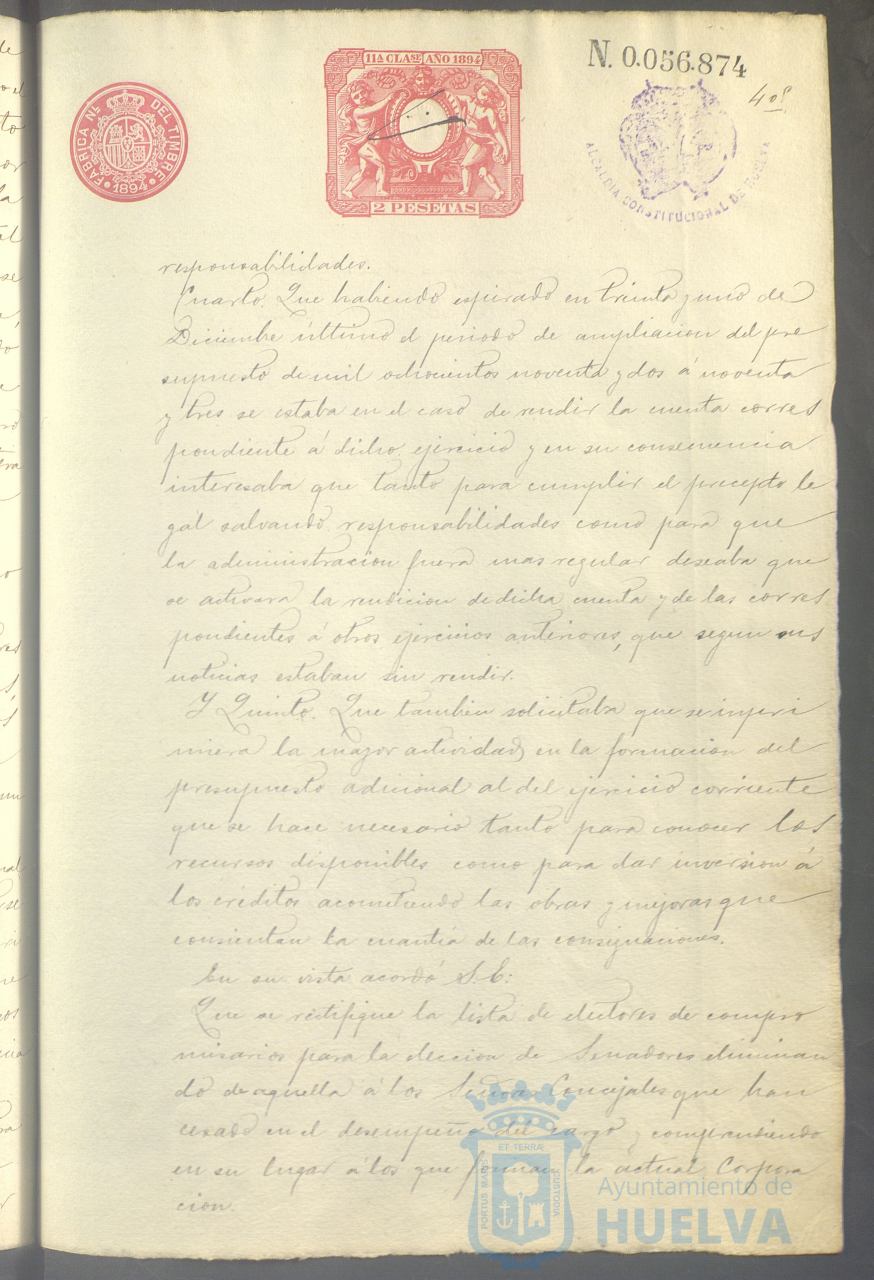 FABRICA Nᴸ DEL TIMBRE
1894
11ᴬ CLASᴱ AÑO 1894
2 PESETAS
N. 0.056.874
ALCALDIA CONSTITUCIONAL DE HUELVA
responsabilidades.
Cuarto. Que habiendo espirado en treinta y uno de
Diciembre último el periodo de ampliacion del pre
supuesto de mil ochocientos noventa y dos á noventa
y tres se estaba en el caso de rendir la cuenta corres
pondiente á dicho ejercicio y en su consecuencia
interesaba que tanto para cumplir el precepto le
gal salvando responsabilidades como para que
la administracion fuera mas regular deseaba que
se activara la rendicion de dicha cuenta y de las corres
pondientes á otros ejercicios anteriores, que segun sus
noticias estaban sin rendir.
Y Quinto. Que tambien solicitaba que se inpri
miera la mayor actividad en la formacion del
presupuesto adicional al del ejercicio corriente
que se hace necesario tanto para conocer los
recursos disponibles como para dar inversion á
los créditos acometiendo las obras y mejoras que
consientan la cuantía de las consignaciones.
En su vista acordó S.E:
Que se rectifique la lista de electores de compro
misarios para la eleccion de Senadores eliminan
do de aquella á los Señores Concejales que han
cesado en el desempeño del cargo y comprendiendo
en su lugar á los que forman la actual Corpora
cion.
PORTUS MARIS ET TERRÆ CUSTODIA
Ayuntamiento de
HUELVA